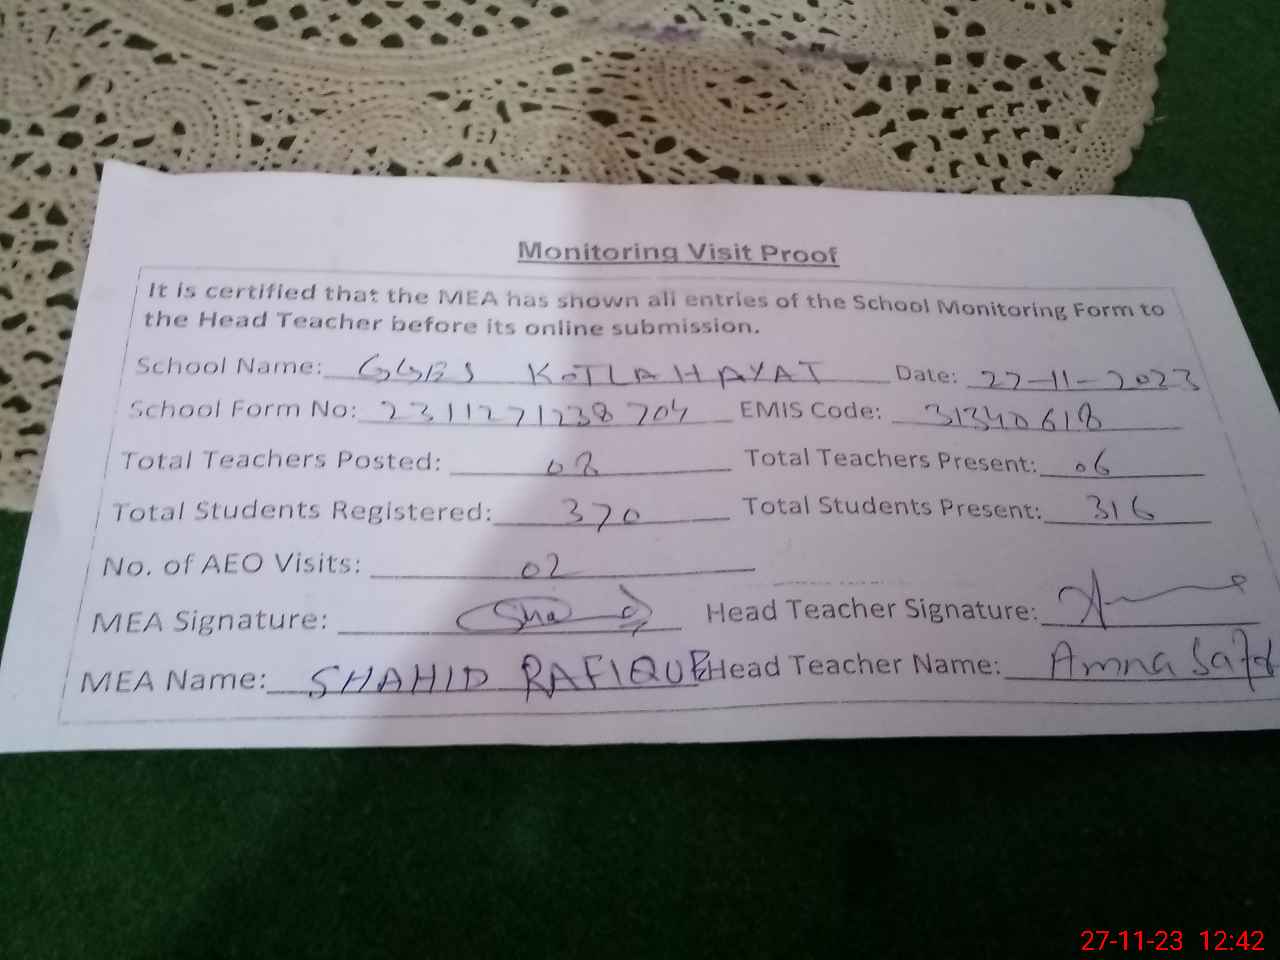 Monitoring Visit Proof
It is certified that the MEA has shown all entries of the School Monitoring Form to
the Head Teacher before its online submission.
School Name: GGES KOTLA HAYAT Date: 27-11-2023
School Form No: 2311271238704 EMIS Code: 31340618
Total Teachers Posted: 08 Total Teachers Present: 06
Total Students Registered: 370 Total Students Present: 316
No. of AEO Visits: 02
MEA Signature: Head Teacher Signature:
MEA Name: SHAHID RAFIQUE Head Teacher Name: Amna
27-11-23 12:42